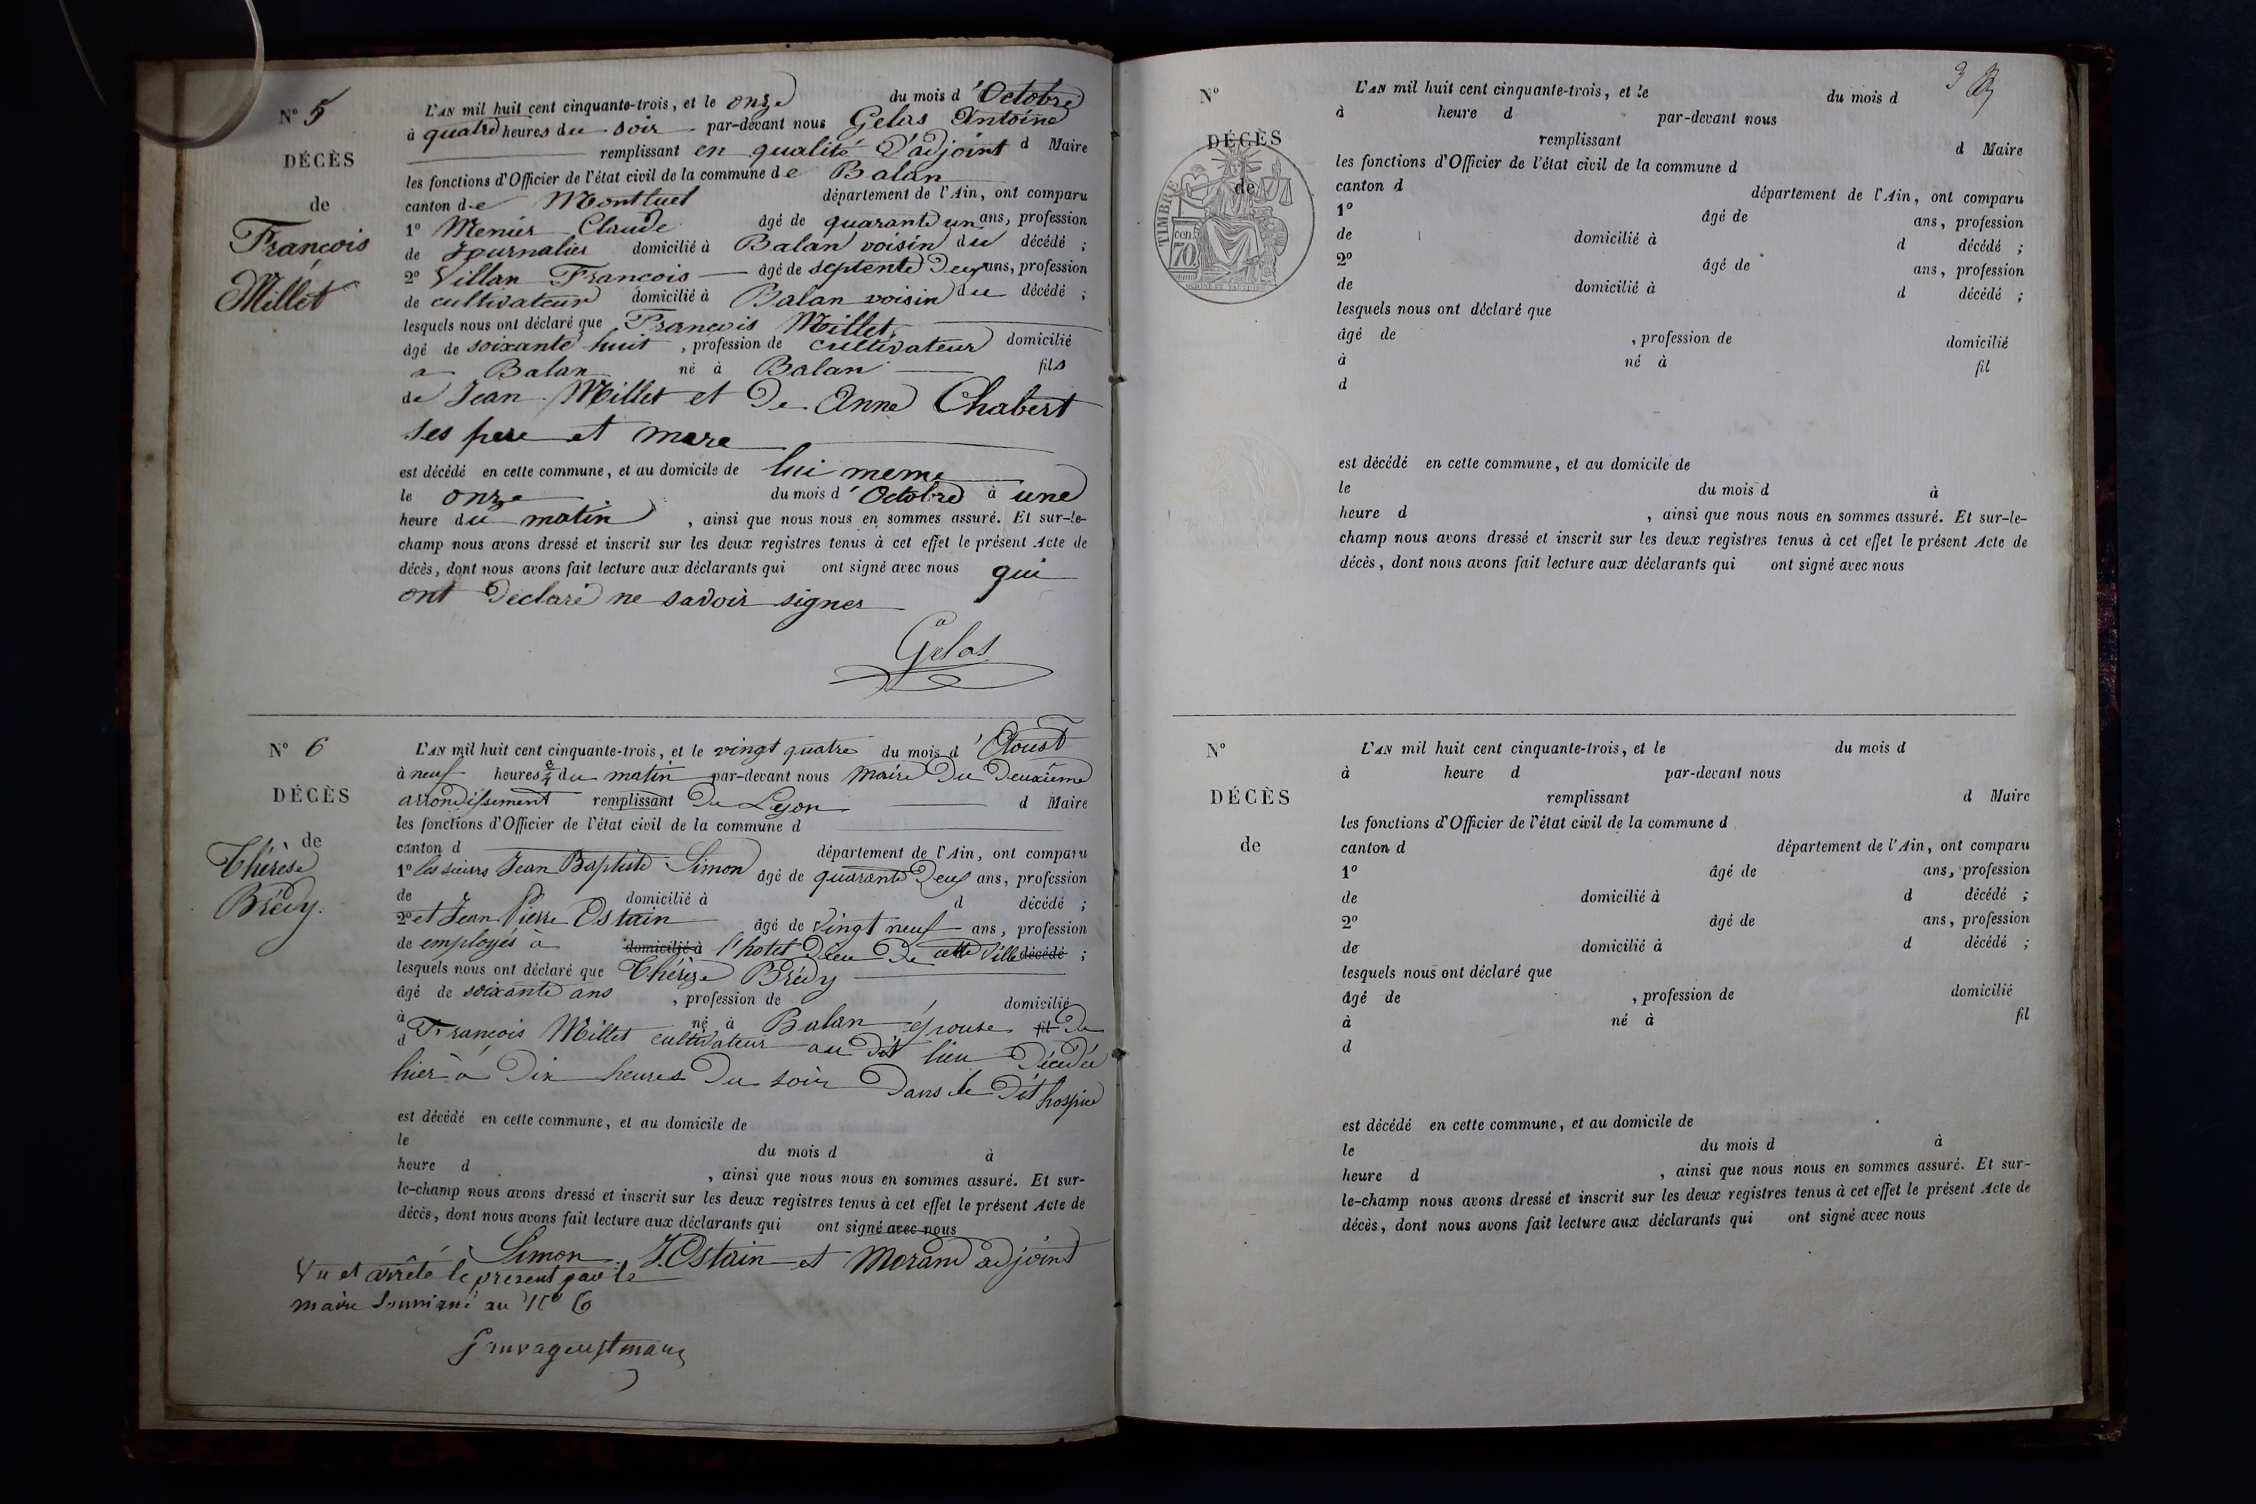 N° 5
DÉCÈS
de
François
Millet
L'AN mil huit cent cinquante-trois, et le onze du mois d'Octobre
à quatre heures du soir par-devant nous Gelas Antoine
remplissant en qualité d'adjoint d Maire
les fonctions d'Officier de l'état civil de la commune de Balan
canton de Montluel département de l'Ain, ont comparu
1° Menier Claude âgé de quarante un ans, profession
de Journalier domicilié à Balan voisin du décédé ;
2° Villan François âgé de septente deux ans, profession
de cultivateur domicilié à Balan voisin du décédé ;
lesquels nous ont déclaré que François Millet
âgé de soixante huit , profession de cultivateur domicilié
a Balan né à Balan fils
de Jean Millet et De Anne Chabert
ses pere et mere
est décédé en cette commune, et au domicile de lui meme
le onze du mois d'Octobre à une
heure du matin , ainsi que nous nous en sommes assuré. Et sur-le-
champ nous avons dressé et inscrit sur les deux registres tenus à cet effet le présent Acte de
décès, dont nous avons fait lecture aux déclarants qui ont signé avec nous qui
ont Declaré ne savoir signer
Gelas
N° 6
DÉCÈS
de
Thérèse
Brédy.
L'AN mil huit cent cinquante-trois, et le vingt quatre du mois d'Aoust
à neuf heures du matin par-devant nous maire Du Deuxième
arrondissement remplissant De Lyon d Maire
les fonctions d'Officier de l'état civil de la commune d
canton d département de l'Ain, ont comparu
1° les sieurs Jean Baptiste Simon âgé de quarante Deux ans, profession
de domicilié à d décédé ;
2° et Jean Pierre Ostain âgé de vingt neuf ans, profession
de employés à domicilié à l'hotel Dieu De cette ville décédé ;
lesquels nous ont déclaré que Thérèse Brédy
âgé de soixante ans , profession de domicilié
à né à Balan épouse fil De
d François Millet cultivateur au Dit lieu Décédée
hier à Dix heures Du soir Dans le Dit hospice
est décédé en cette commune, et au domicile de
le du mois d à
heure d , ainsi que nous nous en sommes assuré. Et sur-
le-champ nous avons dressé et inscrit sur les deux registres tenus à cet effet le présent Acte de
décès, dont nous avons fait lecture aux déclarants qui ont signé avec nous
Simon J. Ostain et Morand adjoint
Vu et arrêté le present par le
maire soussigné au N° 6
N°
DÉCÈS
de
TIMBRE
70
L'AN mil huit cent cinquante-trois, et le du mois d
à heure d par-devant nous
remplissant d Maire
les fonctions d'Officier de l'état civil de la commune d
canton d département de l'Ain, ont comparu
1° âgé de ans, profession
de domicilié à d décédé ;
2° âgé de ans, profession
de domicilié à d décédé ;
lesquels nous ont déclaré que
âgé de , profession de domicilié
à né à fil
d
est décédé en cette commune, et au domicile de
le du mois d à
heure d , ainsi que nous nous en sommes assuré. Et sur-le-
champ nous avons dressé et inscrit sur les deux registres tenus à cet effet le présent Acte de
décès, dont nous avons fait lecture aux déclarants qui ont signé avec nous
N°
DÉCÈS
de
L'AN mil huit cent cinquante-trois, et le du mois d
à heure d par-devant nous
remplissant d Maire
les fonctions d'Officier de l'état civil de la commune d
canton d département de l'Ain, ont comparu
1° âgé de ans, profession
de domicilié à d décédé ;
2° âgé de ans, profession
de domicilié à d décédé ;
lesquels nous ont déclaré que
âgé de , profession de domicilié
à né à fil
d
est décédé en cette commune, et au domicile de
le du mois d à
heure d , ainsi que nous nous en sommes assuré. Et sur-
le-champ nous avons dressé et inscrit sur les deux registres tenus à cet effet le présent Acte de
décès, dont nous avons fait lecture aux déclarants qui ont signé avec nous